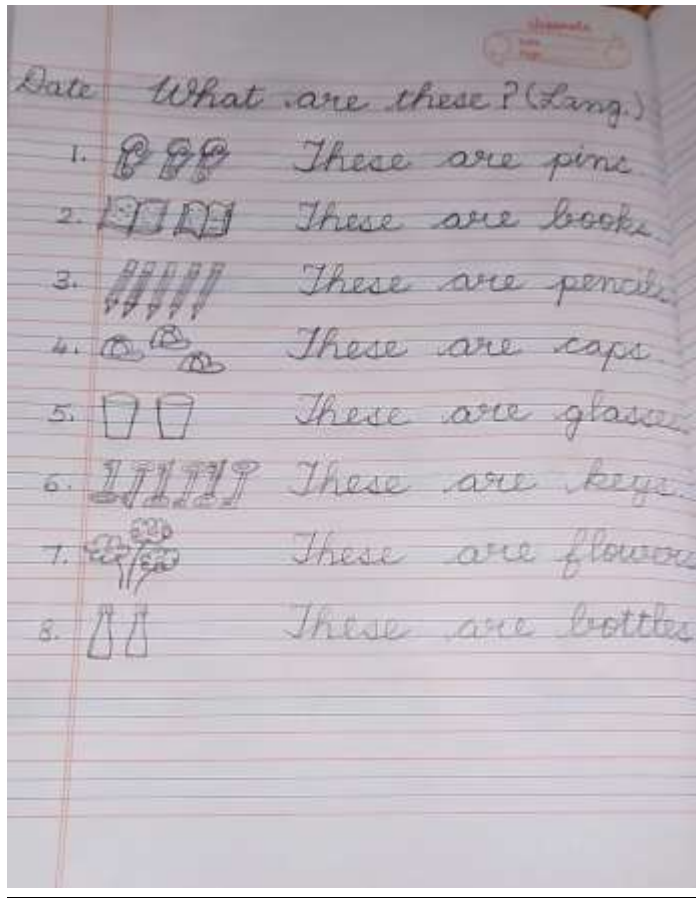 classmate
Date
Page
Date What are these? (Lang.)
1. These are pins.
2. These are books.
3. These are pencils.
4. These are caps.
5. These are glasses.
6. These are keys.
7. These are flowers
8. These are bottles